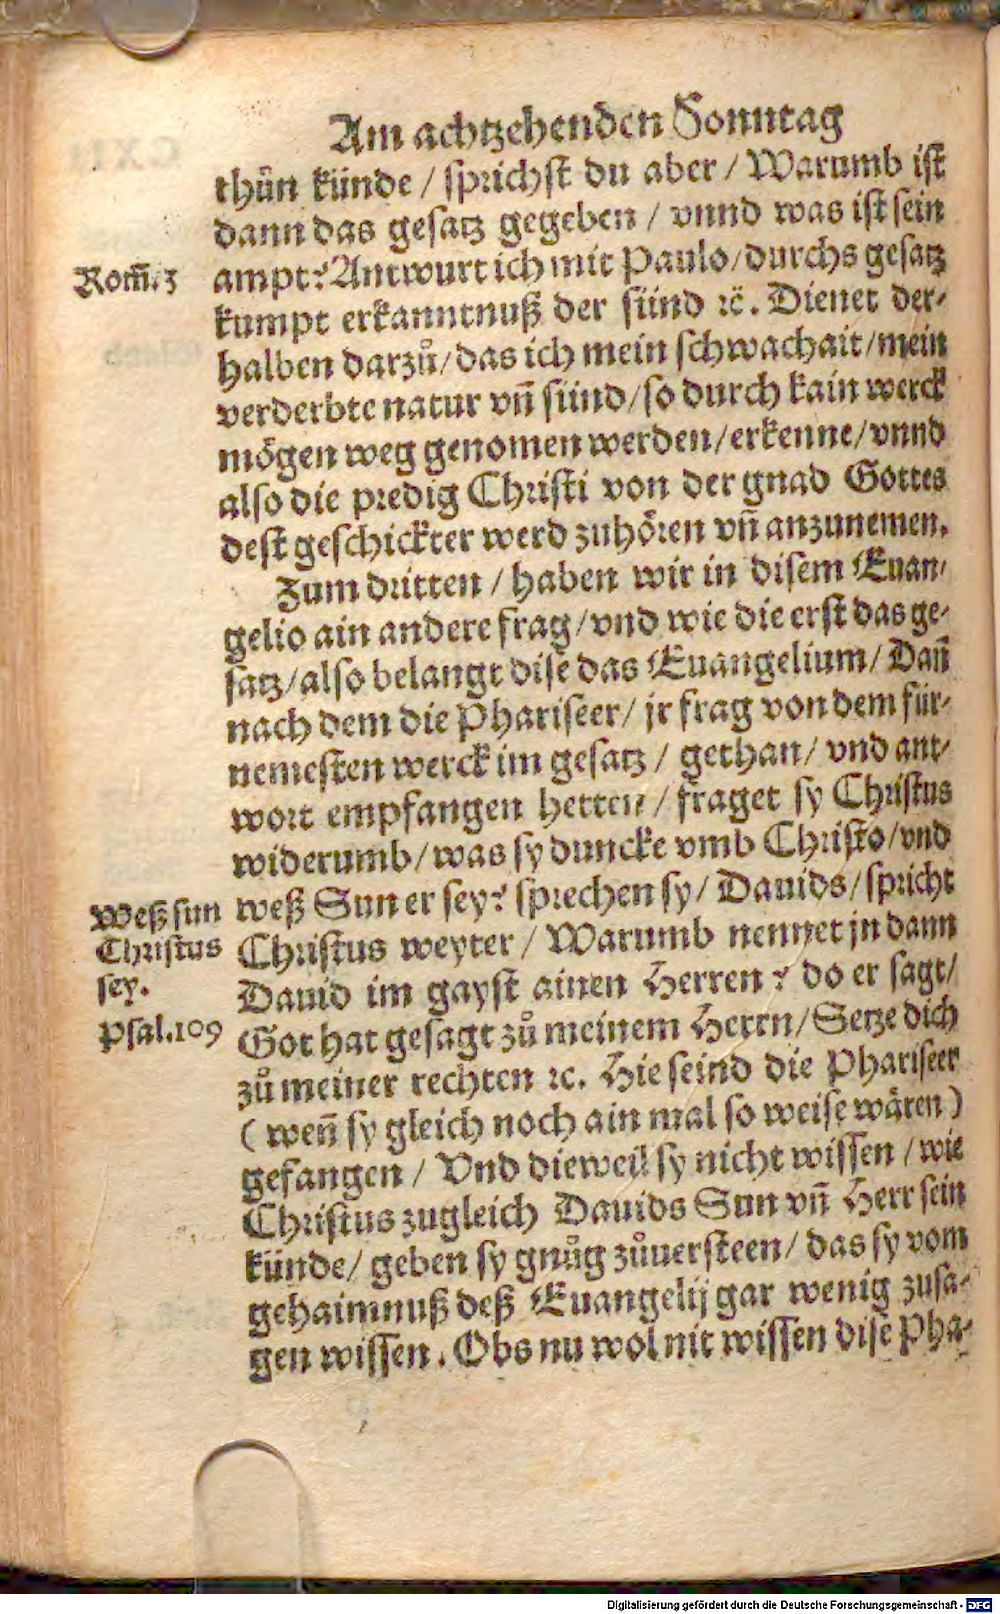 Am achtzehenden Sonntag
thůn künde / sprichst du aber / Warumb ist
dann das gesatz gegeben / vnnd was ist sein
Rom̃. 3
ampt? Antwurt ich mit Paulo / durchs gesatz
kumpt erkanntnuß der sünd ꝛc̃. Dienet der-
halben darzů / das ich mein schwachait / mein
verderbte natur vñ sünd / so durch kain werck
mögen weg genomen werden / erkenne / vnnd
also die predig Christi von der gnad Gottes
dest geschickter werd zuhören vñ anzunemen.
Zum dritten / haben wir in disem Euan-
gelio ain andere frag / vnd wie die erst das ge-
satz / also belangt dise das Euangelium / Dañ
nach dem die Phariseer / jr frag von dem für-
nemesten werck im gesatz / gethan / vnd ant-
wort empfangen hetten / fraget sy Christus
widerumb / was sy duncke vmb Christo / vnd
Weß sun
Christus
sey.
Psal. 109
weß Sun er sey? sprechen sy / Dauids / spricht
Christus weyter / Warumb nennet jn dann
Dauid im gayst ainen Herren? do er sagt /
Got hat gesagt zů meinem Herrn / Setze dich
zů meiner rechten ꝛc. Hie seind die Phariseer
( weñ sy gleich noch ain mal so weise wären )
gefangen / Vnd dieweil sy nicht wissen / wie
Christus zugleich Dauids Sun vñ Herr sein
künde / geben sy gnůg zůuersteen / das sy vom
gehaimnuß deß Euangelij gar wenig zusa-
gen wissen. Obs nu wol nit wissen dise Pha-
Digitalisierung gefördert durch die Deutsche Forschungsgemeinschaft - DFG